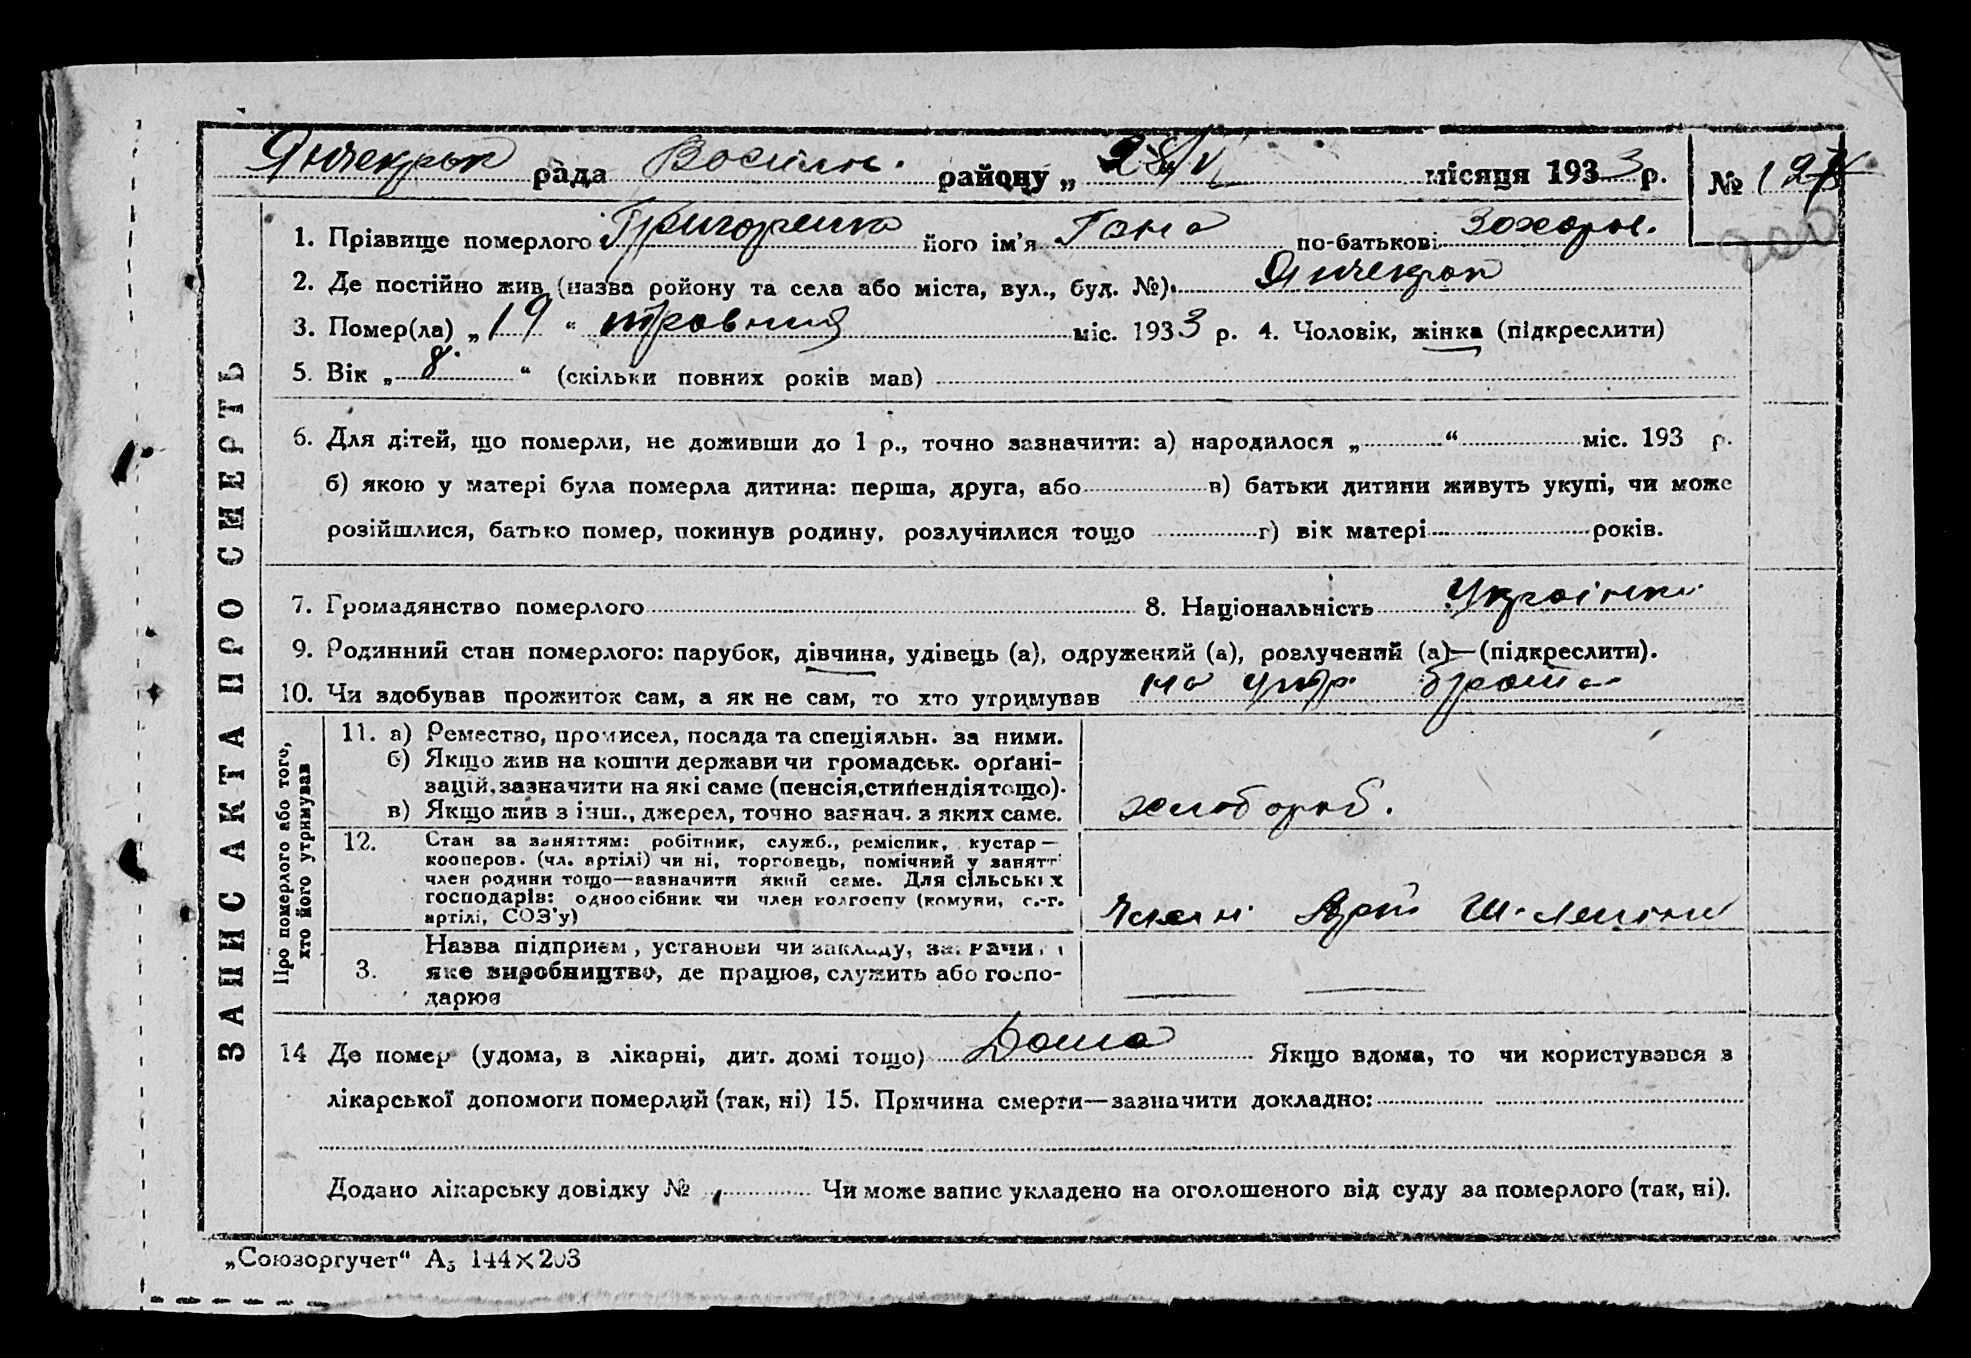 Янчекрак рада Васили. району „ 28/VI місяця 1933 р. № 127
1. Прізвище померлого Григоренко його ім’я Гана по-батькові Захарів.
2. Де постійно жив (назва ройону та села або міста, вул., буд. №) Янчекрак
3. Помер(ла) „ 19 “ травния міс. 1933 р. 4. Чоловік, жінка (підкреслити)
5. Вік „ 8 “ (скільки повних років мав)
6. Для дітей, що померли, не доживши до 1 р., точно зазначити: а) народилося „ “ міс. 193 р.
б) якою у матері була померла дитина: перша, друга, або в) батьки дитини живуть укупі, чи може
розійшлися, батько помер, покинув родину, розлучилися тощо г) вік матері років.
7. Громадянство померлого 8. Національність Українка
9. Родинний стан померлого: парубок, дівчина, удівець (а), одружений (а), розлучений (а)—(підкреслити).
10. Чи здобував прожиток сам, а як не сам, то хто утримував на утр. брата
ЗАПИС АКТА ПРО СМЕРТЬ
Про померлого або того,
хто його утримував
11. а) Ремество, промисел, посада та спеціяльн. за ними.
б) Якщо жив на кошти держави чи громадськ. орґані-
зацій, зазначити на які саме (пенсія, стипендія тощо).
в) Якщо жив з інш., джерел, точно зазнач. з яких саме.
хлібороб.
12. Стан за заняттям: робітник, служб., реміспик, кустар—
кооперов. (чл. артілі) чи ні, торговець, помічний у занятт
член родини тощо—зазначити який саме. Для сільських
господарів: одноосібник чи член колгоспу (комуни, с.-г.
артілі, СОЗ’у)
Член Арті Ш-Леніна
Назва підприєм, установи чи закладу, зазначи
3. яке виробництво, де працюв, служить або госпо-
дарюв
14 Де помер (удома, в лікарні, дит. домі тощо) Дома Якщо вдома, то чи користувався з
лікарської допомоги померлий (так, ні) 15. Причина смерти—зазначити докладно:
Додано лікарську довідку № Чи може запис укладено на оголошеного від суду за померлого (так, ні).
„Союзоргучет“ А5 144×203